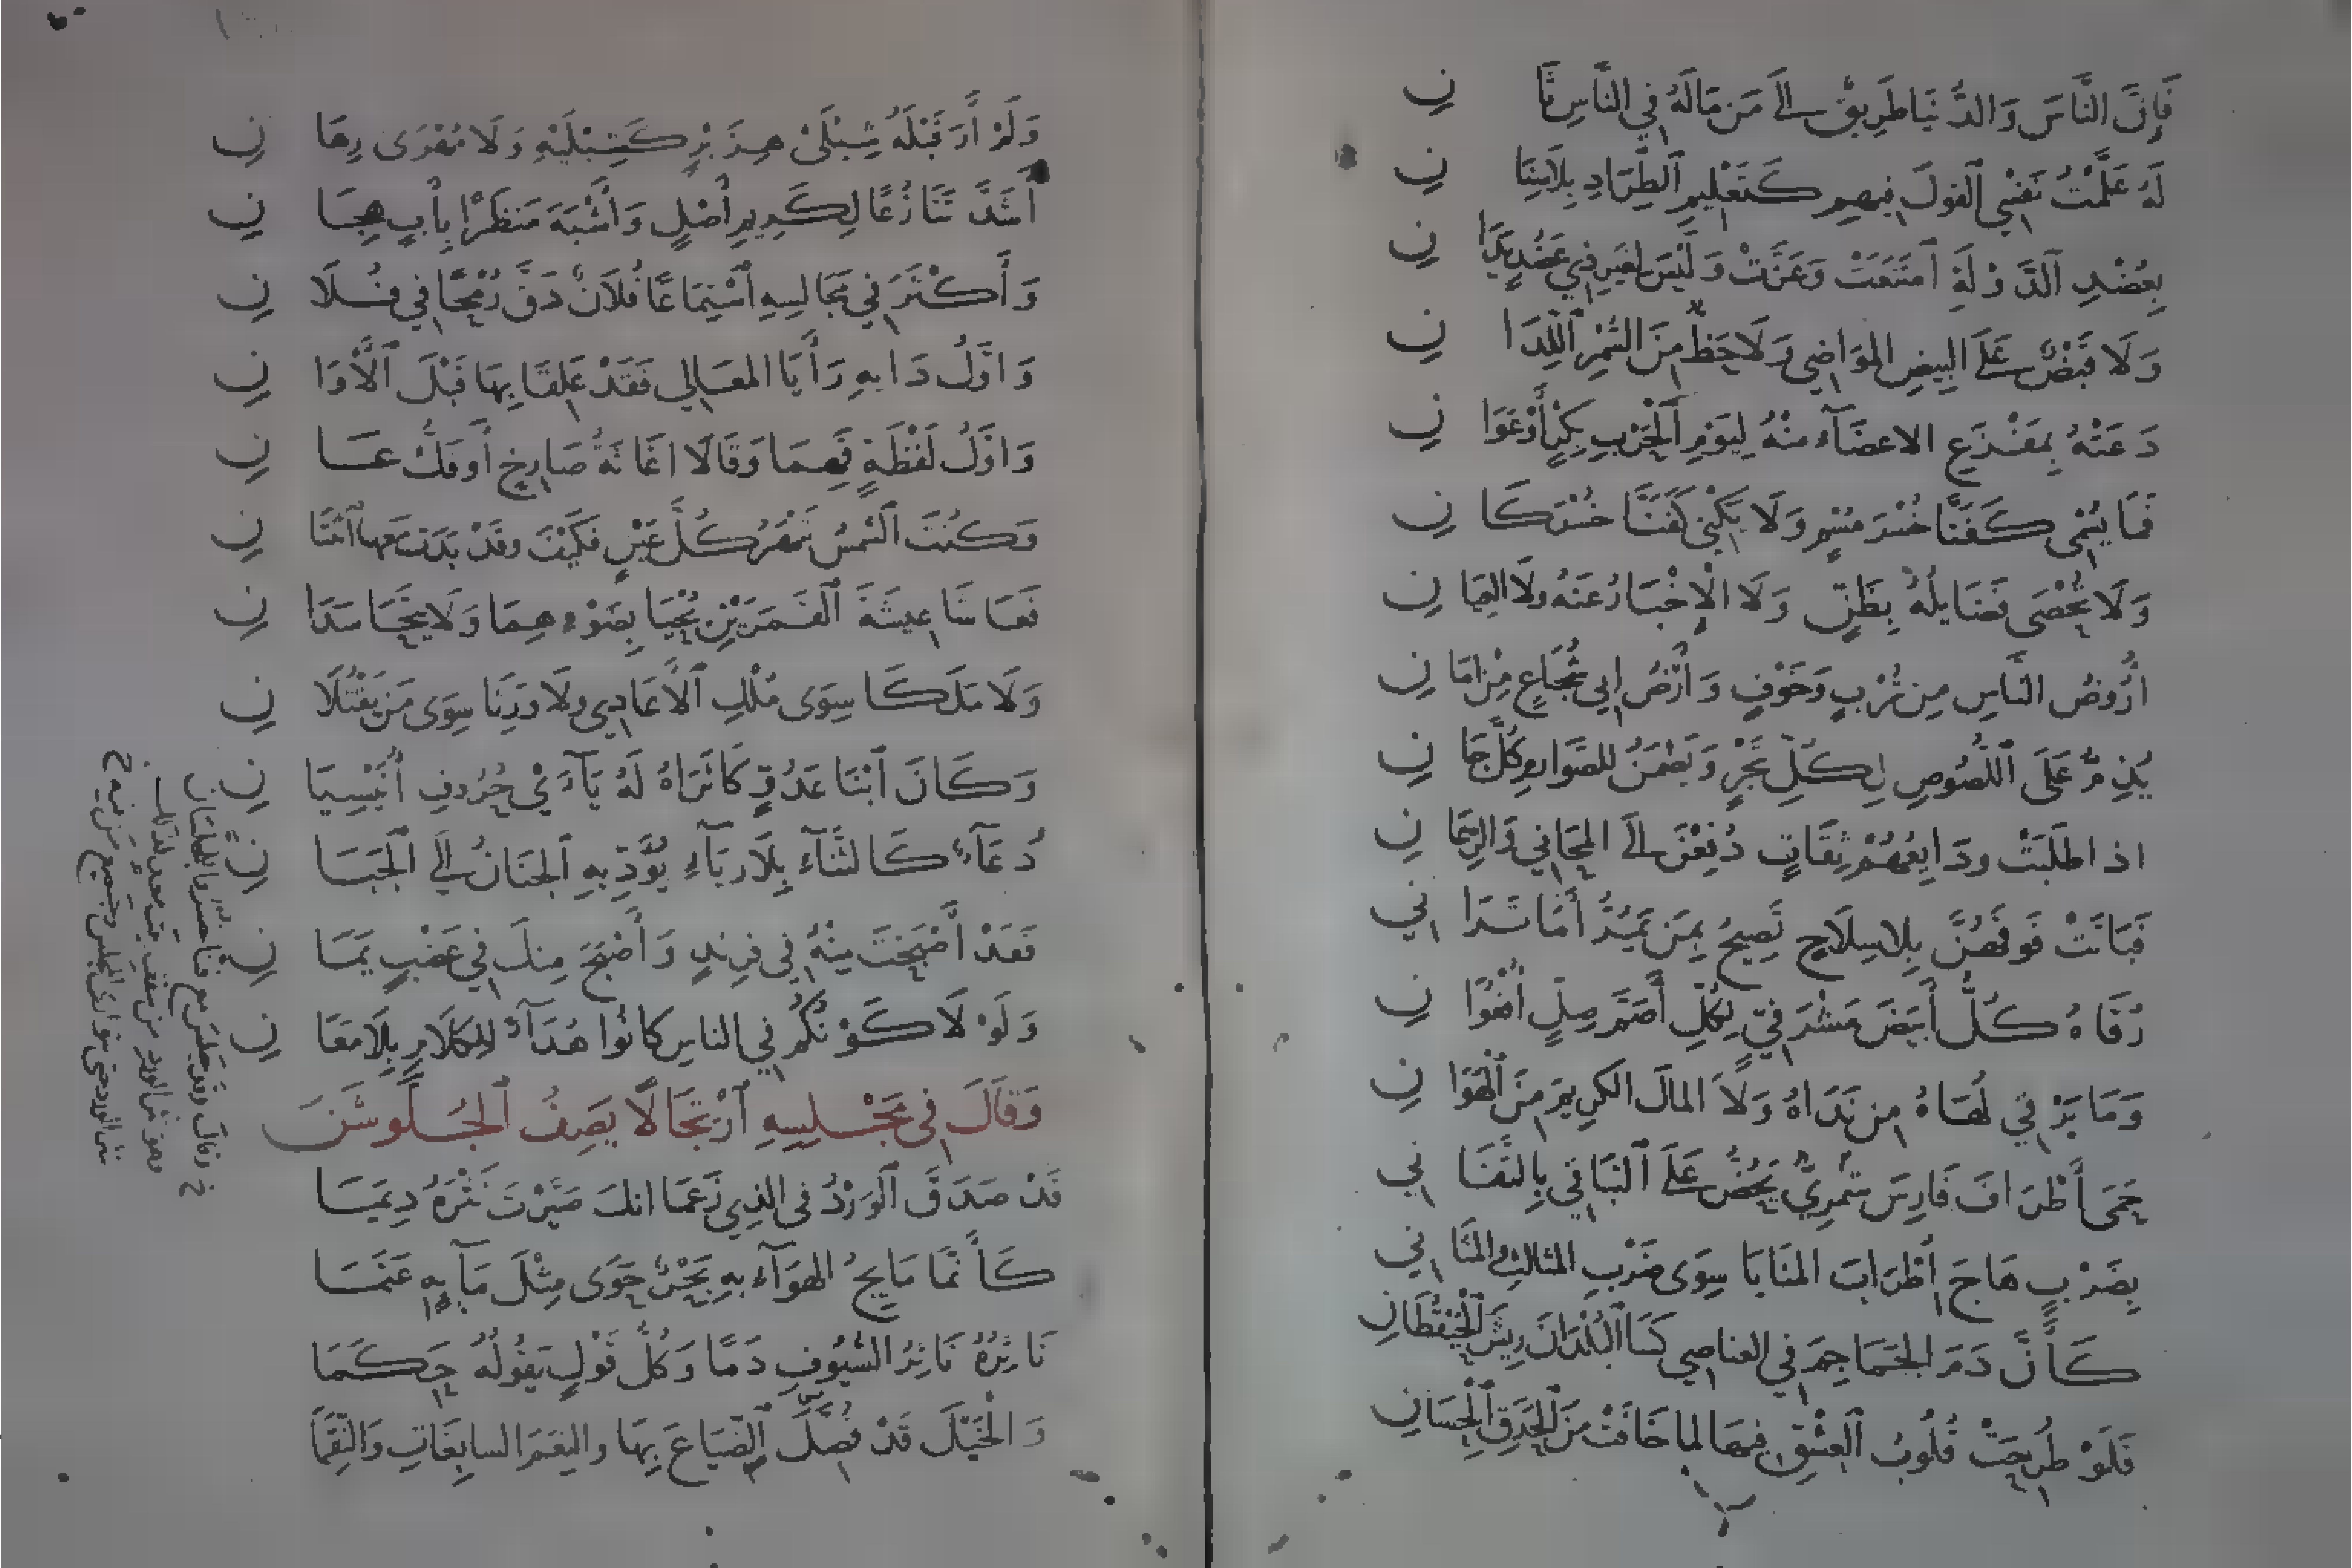 فَإِنَّ النَّاسَ وَالدُّنْيَا طَرِيقٌ إِلَى مَن مَالَهُ فِي النَّاسِ ثَا نِ
لَهُ عَلَّمْتُ نَفْسِي ٱلْقَولَ فِيهِم كَتَعْلِيمِ ٱلطِّرَادِ بِلَا سِنَا نِ
بِعَضْدِ ٱلدَّوْلَةِ ٱمْتَنَعَتْ وَعَزَّتْ وَلَيْسَ لِغَيرِ ذِي عَضُدٍ يَدَا نِ
وَلَا قَبْضٌ عَلَى البِيضِ المَوَاضِي وَلَا حَظٌّ مِنَ السُّمْرِ ٱللِّدَا نِ
دَعَتْهُ بِمَفْزَعِ الاعضَآءِ مِنْهُ لِيَوْمِ ٱلْحَرْبِ بِكْرٍ أَوْ عَوَا نِ
فَمَا يُسْمِى كَفَنَّا خُسْرَ مُسْمٍ وَلَا يَكْنِي كَفَنَّا خُسْرَ كَا نِ
وَلَا تُحْصَى فَضَايلُهُ بِظَنٍّ وَلَا الْإِخْبَارُ عَنْهُ وَلَا العِيَا نِ
أُرُوضُ النَّاسِ مِن تُرْبٍ وَخَوْفٍ وَأَرْضُ ابِي شُجَاعٍ مِنْ امَا نِ
يُذِمُّ عَلَى ٱللُّصُوصِ لِكُلِّ تَجْرٍ وَيَضْمَنُ لِلصَّوَارِمِ كُلَّ جَا نِ
اذا طَلَبَتْ وَدَايِعُهُمْ ثِقَاتٍ دُفِعْنَ إِلَى المَحَانِي وَالرِّعَا نِ
فَبَاتَتْ فَوقَهُنَّ بِلا سِلَاحٍ تَصِيحُ بِمَن يَمُرُّ أَمَا تَرَا نِي
رُقَاهُ كُلُّ أَبْيَضَ مَشْرَفِيٍّ لِكُلِّ أَصَمَّ صِلٍّ أُفْعُوَا نِ
وَمَا يَرْقِي لُهَاهُ مِن نَدَاهُ وَلَا المَالَ الكَرِيمَ مِنَ ٱلْهَوَا نِ
حَمَى أَطْرَافَ فَارِسَ شَمَّرِيٌّ يَحُضُّ عَلَى ٱلتَّبَاقِي بِالتَّفَا نِي
بِضَرْبٍ هَاجَ أَطْرَابَ المَنَايَا سِوَى ضَرْبِ المَثَالِثِ وَالمَثَا نِي
كَأَنَّ دَمَ الجَمَاجِمِ فِي العَنَاصِي كَسَا ٱلْبُلْدَانَ رِيشَ ٱلْحَيْقُطَانِ
فَلَوْ طُرِحَتْ قُلُوبُ ٱلْعِشْقِ فِيهَا لَمَا خَافَتْ مِنَ ٱلْحَدَقِ ٱلْحِسَانِ
وَلَمْ أَرَ قَبْلَهُ شِبْلَىْ هِزَبْرٍ كَشِبْلَيْهِ وَلَا مُهْرَى رِهَا نِ
أَشَدَّ تَنَازُعًا لِكَرِيمِ أَصْلٍ وَأَشْبَهَ مَنظَرًا بِأَبٍ هِجَا نِ
وَأَكْثَرَ فِي مَجَالِسِهِ ٱسْتِمَاعًا فُلَانٌ دَقَّ رُمْحًا فِي فُلَا نِ
وَاوَّلُ دَايهٍ رَأَيَا المَعَالِي فَقَدْ عَلِقَا بِهَا قَبْلَ ٱلْأَوَا نِ
وَاوَّلُ لَفْظَةٍ فَهِمَا وَقَالَا اغَاثَةُ صَارِخٍ أَو فَكُّ عَا نِ
وَكُنتَ ٱلشَّمْسَ تَبْهَرُ كُلَّ عَيْنٍ فَكَيْفَ وَقَدْ بَدَت مَعَها ٱثْنَتَا نِ
فَعَاشَا عِيشَةَ ٱلْقَمَرَيْنِ يُحْيَا بِضَوْءِهِمَا وَلَا يَتَحَاسَدَا نِ
وَلَا مَلَكَا سِوَى مُلْكِ ٱلْأَعَادِي وَلَا وَرِثَا سِوَى مَن يَقْتُلَا نِ
وَكَانَ ٱبْنَا عَدُوٍّ كَاثَرَاهُ لَهُ يَآءَىْ حُرُوفِ أُنَيْسِيَا نِ
دُعَآءٌ كَالثَّنَآءِ بِلَا رِيَآءٍ يُؤَدِّيهِ ٱلْجَنَانُ إِلَى ٱلْجَنَا نِ
فَقَدْ أَصْبَحْتَ مِنْهُ فِي فِرِنْدٍ وَأَصْبَحَ مِنكَ فِي عَضْبٍ يَمَا نِ
وَلَوْلَا كَوْنُكُمْ فِي النَّاسِ كَانُوا هُرَآءً كَالكَلَامِ بِلَا مَعَا نِ
وَقَالَ فِى مَجْلِسِهِ ٱرْتِجَالًا يَصِفُ ٱلْجُلَّوسَنَ
قَدْ صَدَقَ ٱلْوَرْدُ فِى الَّذِي زَعَمَا انكَ صَيَّرْتَ نَثْرَهُ دِيَمَا
كَأَنَّمَا مَايِجُ الهَوَآءِ بِهِ بَحْرٌ حَوَى مِثْلَ مَآيِهِ عَنَمَا
نَاثِرُهُ نَاثِرُ السُّيُوفِ دَمًا وَكُلَّ قَوْلٍ يَقُولُهُ حِكَمَا
وَالْخَيْلَ قَدْ فَصَّلَ ٱلضِّيَاعَ بِهَا وَالنِّعَمَ السَابِغَاتِ وَالنِّقَمَا